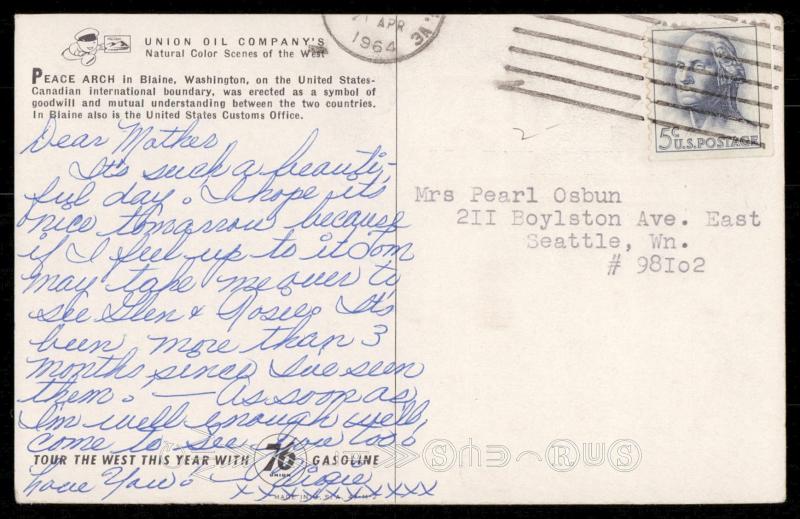 UNION OIL COMPANY'S
Natural Color Scenes of the West
PEACE ARCH in Blaine, Washington, on the United States-
Canadian international boundary, was erected as a symbol of
goodwill and mutual understanding between the two countries.
In Blaine also is the United States Customs Office.
Dear Mother
It's such a beauti-
ful day. I hope its
nice tomorrow because
if I feel up to it Dom
may take me over to
see Glen & Rosie. It's
been more than 3
months since I've seen
them. — As soon as
I'm well enough we'll
come to see you too.
TOUR THE WEST THIS YEAR WITH 76 UNION GASOLINE
Love You.
xxxxxxxxxx
MADE IN U.S.A.
21 APR
1964
5¢ U.S. POSTAGE
Mrs Pearl Osbun
2II Boylston Ave. East
Seattle, Wn.
# 98Io2